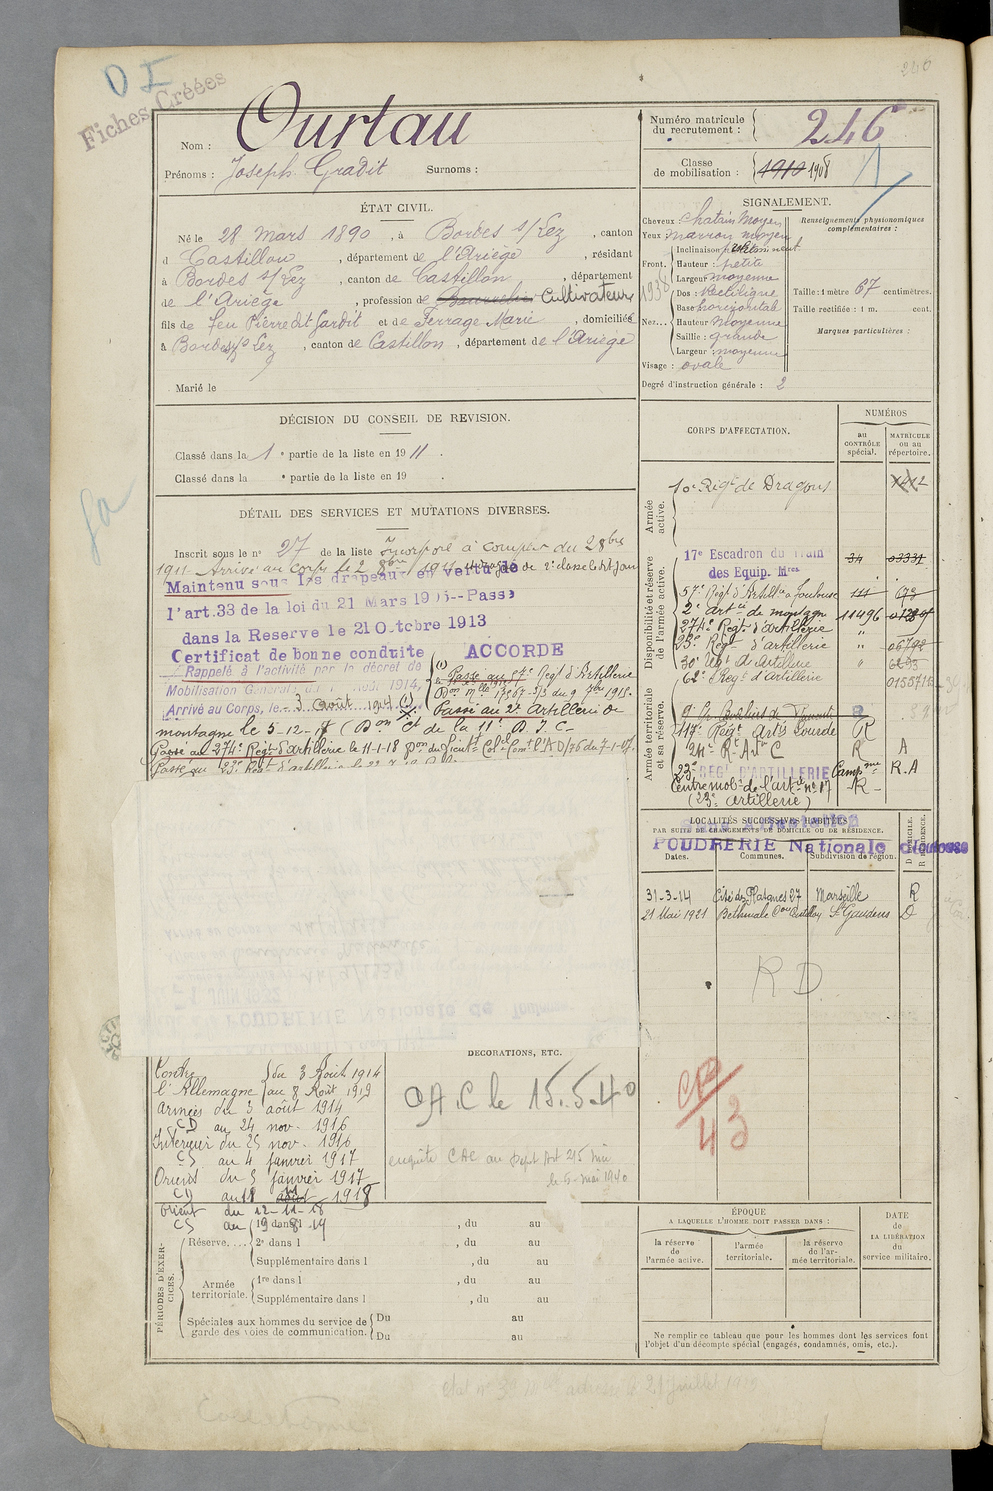 240
O I
Fiches Créées
Nom : Ourtau
Prénoms : Joseph Gradit Surnoms :
Numéro matricule du recrutement : 246
Classe de mobilisation : 1910 1908
ÉTAT CIVIL.
Né le 28 Mars 1890, à Bordes s/Lez, canton
d Castillon, département de l'Ariège, résidant
à Bordes s/Lez, canton de Castillon, département
de l'Ariège, profession de Cultivateur
fils de feu Pierre dt Gardit et de Ferrage Marie, domiciliés
à Bordes s/ Lez, canton de Castillon, département de l'Ariège
Marié le
SIGNALEMENT.
Cheveux : chatain moyen
Yeux : marron moyen
Front. Inclinaison :
Hauteur : petite
Largeur : moyenne
Nez... Dos : Rectiligne
Base : horizontale
Hauteur : moyenne
Saillie : grande
Largeur : moyenne
Visage : ovale
Degré d'instruction générale : 2
Renseignements physionomiques complémentaires :
Taille : 1 mètre 67 centimètres.
Taille rectifiée : 1 m. cent.
Marques particulières :
1938
DÉCISION DU CONSEIL DE REVISION.
Classé dans la 1 e partie de la liste en 1911.
Classé dans la e partie de la liste en 19 .
DÉTAIL DES SERVICES ET MUTATIONS DIVERSES.
Inscrit sous le n° 27 de la liste Incorporé à compter du 2 8bre
1911 Arrivé au corps le 2 8bre 1911 de 2e classe
Maintenu sous les drapeaux en vertu de
l'art.33 de la loi du 21 Mars 1905--Passé
dans la Reserve le 21 Octobre 1913
Certificat de bonne conduite ACCORDE
Rappelé à l'activité par le décret de
Mobilisation Générale du 1 Août 1914,
Arrivé au Corps, le 3 Août 1914 (1)
(1) Passé au 57e Régt d'Artillerie
Passé au 2e Artillerie de
montagne le 5-12-17 (Don Ct de la 11e D. I. C-
Passé au 274e Régt d'artillerie le 11-1-18
Passé au 23e Régt d'artillerie
CORPS D'AFFECTATION.
NUMÉROS
au CONTRÔLE spécial.
MATRICULE ou au répertoire.
Armée active.
10e Régt de Dragons
Disponibilité et réserve de l'armée active.
17e Escadron du Train 34 03331
des Equip. Mres
57e Régt d'Artillie Toulouse
2e artie de montagne 11496
274e Régt d'artillerie "
23e Régt d'artillerie "
130e Régt d'Artillerie "
62e Régt d'artillerie
Armée territoriale et sa réserve.
117e Régt Artie Lourde R
24e Rt A C R A
23e REGt D'ARTILLERIE Campgne R.A
Centre mob. de l'artie n° 17 -R-
(23e Artillerie)
LOCALITÉS SUCCESSIVES HABITÉES
PAR SUITE DE CHANGEMENTS DE DOMICILE OU DE RÉSIDENCE.
POUDRERIE Nationale de Toulouse
Dates. Communes. Subdivision de région. D DOMICILE. R RÉSIDENCE.
31-3-14 Cité des Platanes 27 Marseille R
21 Mai 1921 Bethmale Con Castillon St Gaudens D
R.D.
CR
43
DECORATIONS, ETC.
Contre du 3 Août 1914
l'Allemagne au 8 Août 1919
Armées du 3 août 1914
CD au 24 nov. 1916
Intérieur du 25 nov. 1916
CS au 4 janvier 1917
Orient du 5 janvier 1917
CD au 18 1918
Orient du 12-11-18
CS au 19 8-19
OA.C le 15.5.40
enquête CAC au Dépôt Art
le 6 mai 1940
PÉRIODES D'EXERCICES.
1re dans l , du au
Réserve.... 2e dans l , du au
Supplémentaire dans l , du au
Armée territoriale. 1re dans l , du au
Supplémentaire dans l , du au
Spéciales aux hommes du service de garde des voies de communication. Du au
Du au
ÉPOQUE
A LAQUELLE L'HOMME DOIT PASSER DANS :
la réserve de l'armée active.
l'armée territoriale.
la réserve de l'armée territoriale.
DATE de LA LIBÉRATION du service militaire.
Ne remplir ce tableau que pour les hommes dont les services font
l'objet d'un décompte spécial (engagés, condamnés, omis, etc.).